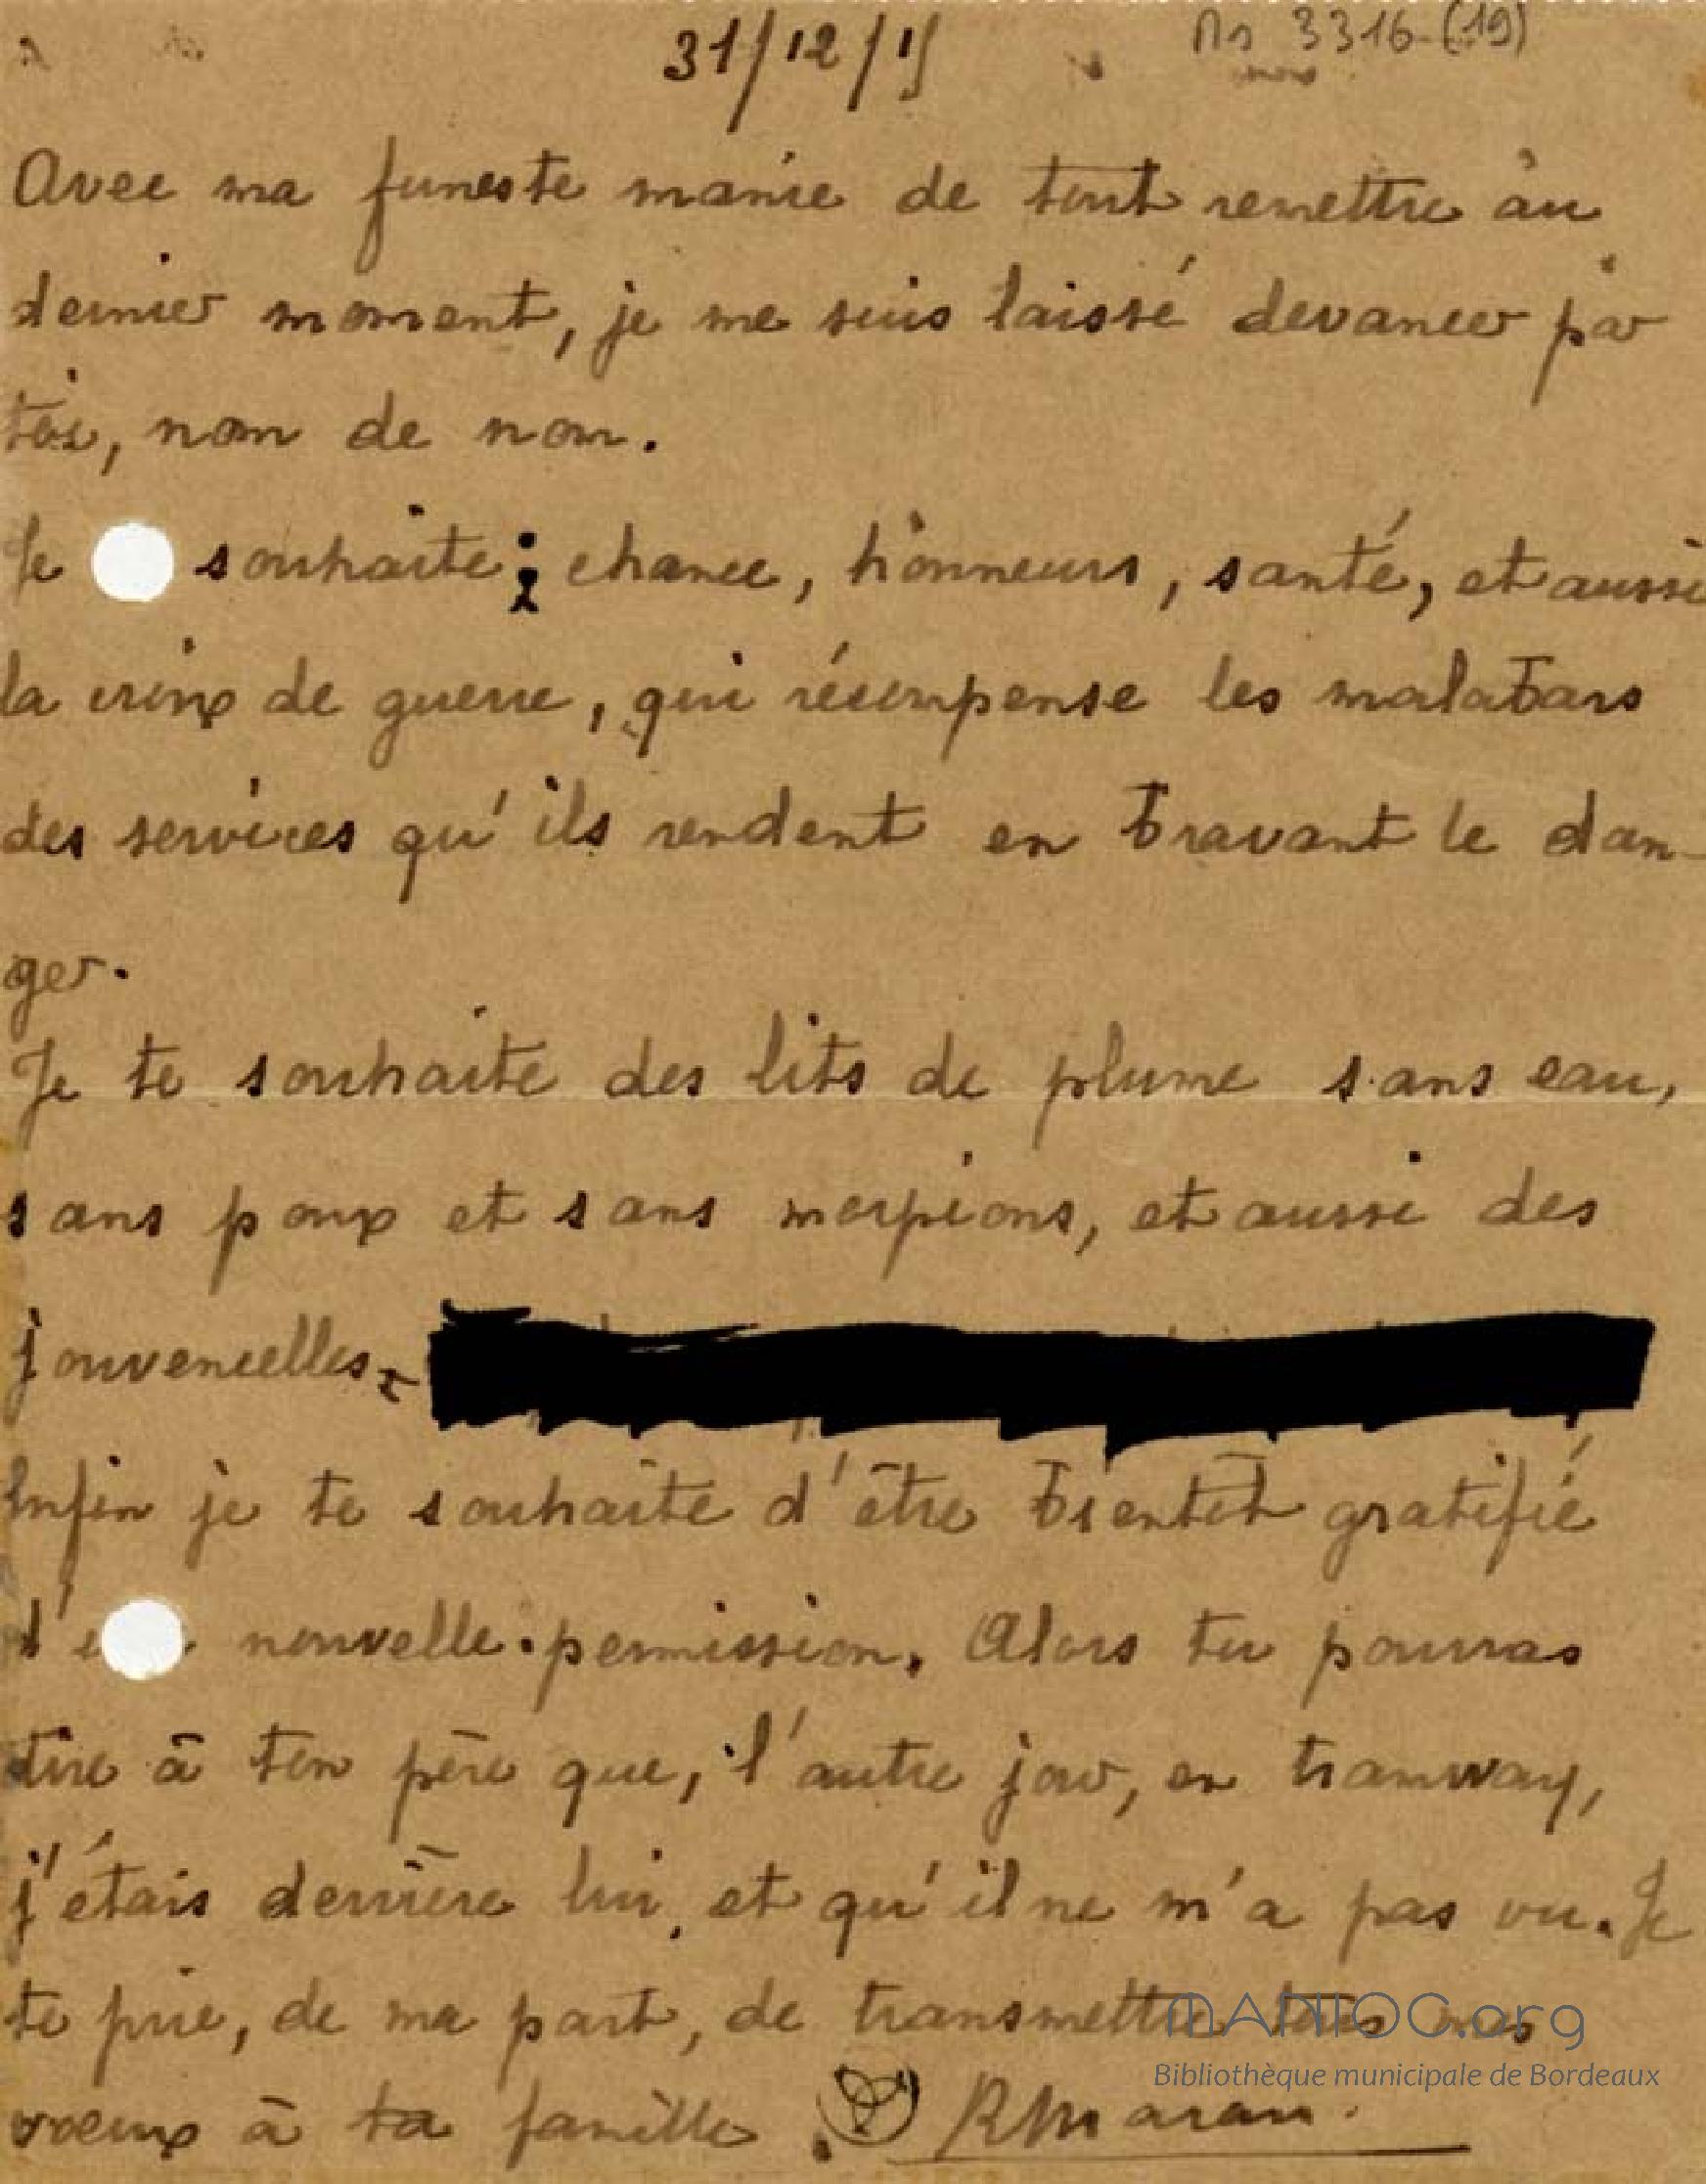 31/12/15
Ms 3316-(19)
Avec ma funeste manie de tout remettre au
dernier moment, je me suis laissé devancer par
toi, nom de nom.
Je souhaite : chance, honneurs, santé, et aussi
la croix de guerre, qui récompense les malabars
des services qu'ils rendent en bravant le dan-
ger.
Je te souhaite des lits de plume sans eau,
sans poux et sans morpions, et aussi des
jouvencelles,
Enfin je te souhaite d'être bientôt gratifié
nouvelle permission. Alors tu pourras
dire à ton père que, l'autre jour, en tramway,
j'étais derrière lui, et qu'il ne m'a pas vu. Je
te prie, de ma part, de transmettre tous mes
voeux à ta famille. RMaran.
MANIOC.org
Bibliothèque municipale de Bordeaux